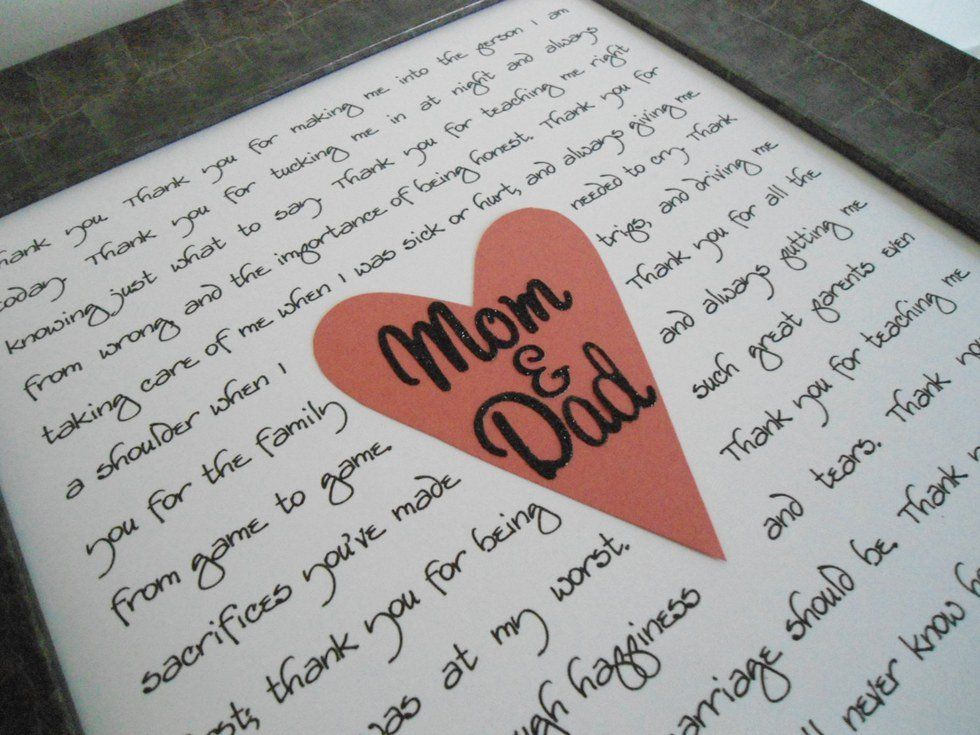 thank you Thank you for making me into the person I am
today. Thank you for tucking me in at night and always
knowing just what to say. Thank you for teaching me right
from wrong and the importance of being honest. Thank you for
taking care of me when I was sick or hurt, and always giving me
a shoulder when I needed to cry. Thank
you for the family trips, and driving me
from game to game. Thank you for all the
sacrifices you've made and always putting me
thank you for being such great parents even
was at my worst. Thank you for teaching me
happiness and tears. Thank you
marriage should be. Thank
never know
Mom
&
Dad